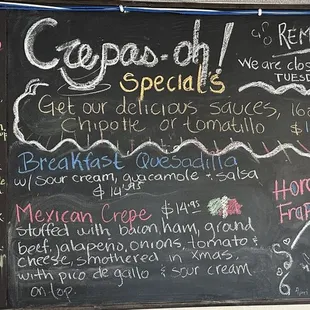 Crepas-oh!
Specials
REM
We are clos
TUES
Get our delicious sauces, 16
Chipotle or tomatillo
Breakfast Quesadilla
w/ Sour cream, guacamole & salsa
$14.95
Mexican Crepe $14.95
stuffed with bacon, ham, ground
beef, jalapeño, onions, tomato &
cheese, smothered in xmas,
with pico de gallo & sour cream
on top.
Hor
Fra